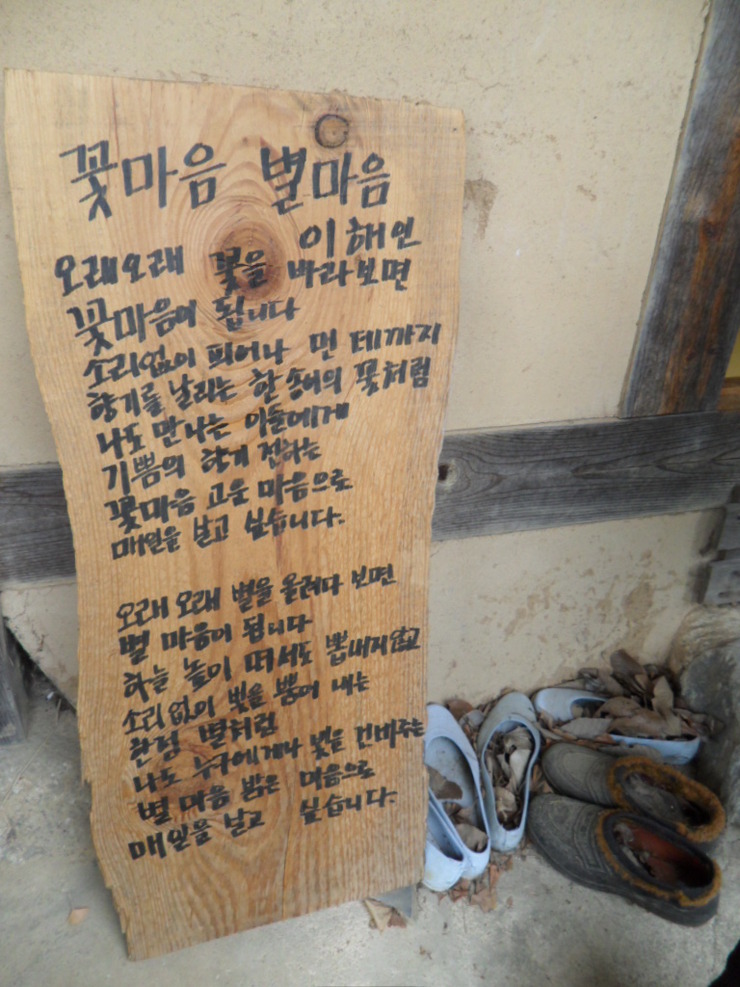 꽃마음 별마음
이해인
오래오래 꽃을 바라보면
꽃마음이 됩니다
소리없이 피어나 먼 데까지
향기를 날리는 한 송이의 꽃처럼
나도 만나는 이들에게
기쁨의 향기 전하는
꽃마음 고운 마음으로
매일을 살고 싶습니다.
오래 오래 별을 올려다 보면
별 마음이 됩니다
하늘 높이 떠서도 뽐내지않고
소리없이 빛을 뿜어 내는
한점 별처럼
나도 누구에게나 빛을 건네주는
별 마음 밝은 마음으로
매일을 살고 싶습니다.